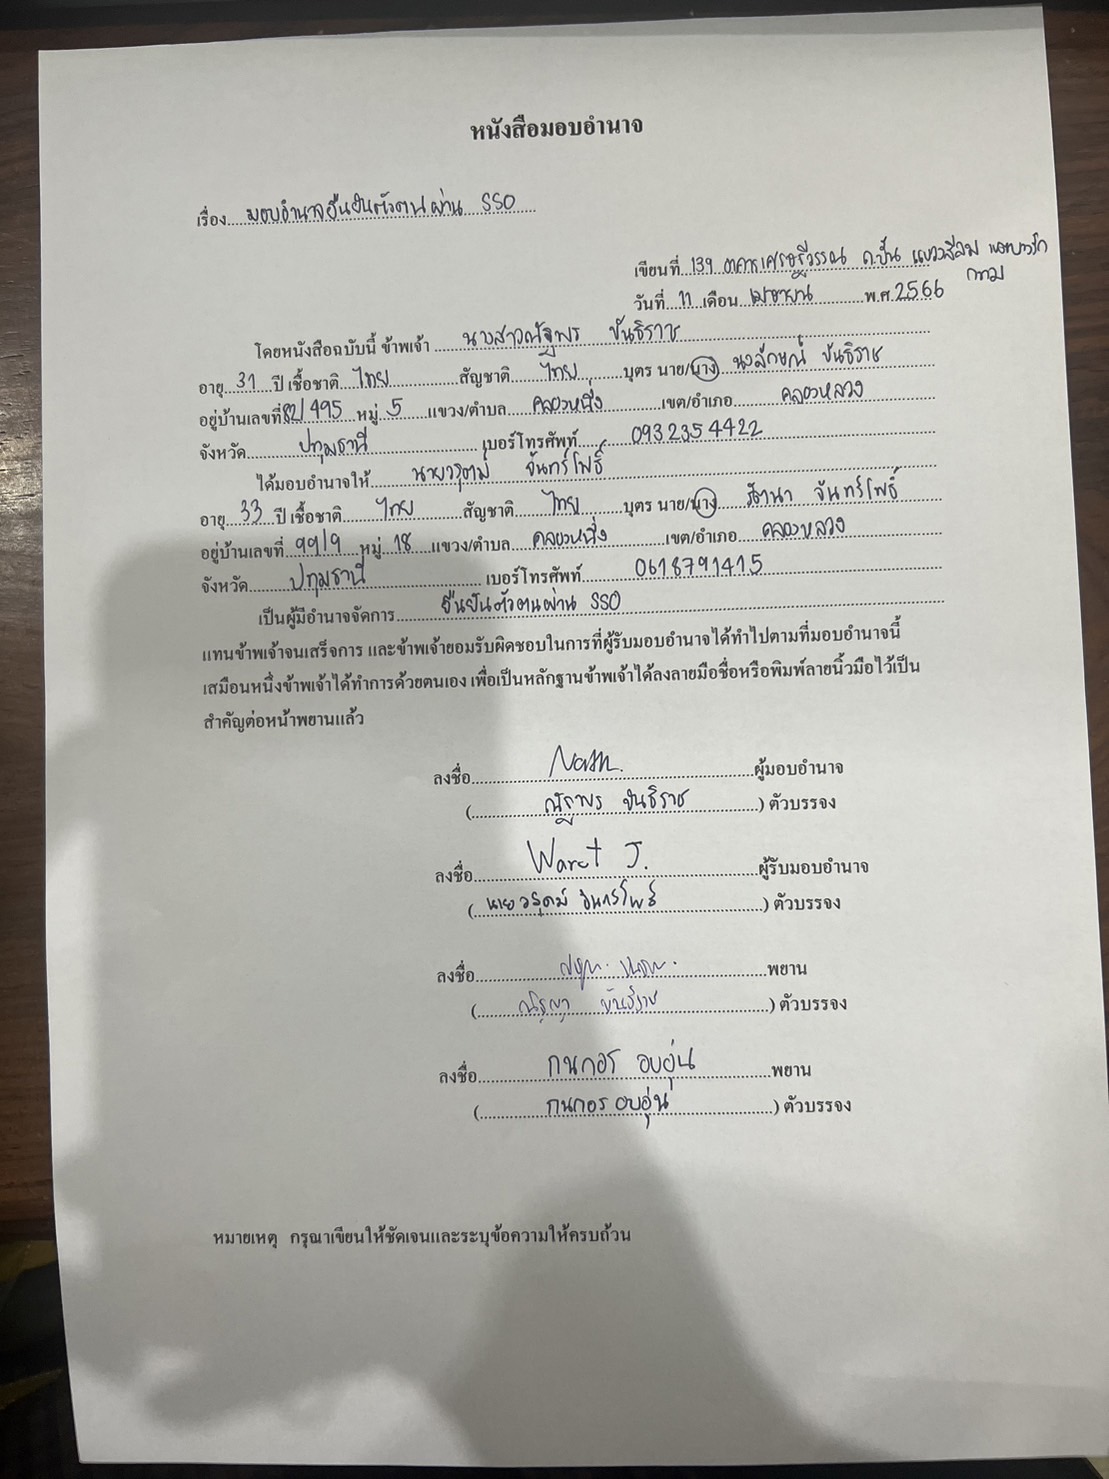 หนังสือมอบอำนาจ
เรื่อง มอบอำนาจยืนยันตัวตนผ่าน SSO
เขียนที่ 139 อาคารเศรษฐีวรรณ ถ.ปั้น แขวงสีลม เขตบางรัก
กทม
วันที่ 11 เดือน เมษายน พ.ศ. 2566
โดยหนังสือฉบับนี้ ข้าพเจ้า นางสาวณัฐพร ขันธิราช
อายุ 31 ปี เชื้อชาติ ไทย สัญชาติ ไทย บุตร นาย/นาง นงลักษณ์ ขันธิราช
อยู่บ้านเลขที่ 82/495 หมู่ 5 แขวง/ตำบล คลองหนึ่ง เขต/อำเภอ คลองหลวง
จังหวัด ปทุมธานี เบอร์โทรศัพท์ 0932354422
ได้มอบอำนาจให้ นายวรุตม์ จันทร์โพธิ์
อายุ 33 ปี เชื้อชาติ ไทย สัญชาติ ไทย บุตร นาย/นาง จันทร์โพธิ์
อยู่บ้านเลขที่ 99/9 หมู่ 18 แขวง/ตำบล คลองหนึ่ง เขต/อำเภอ คลองหลวง
จังหวัด ปทุมธานี เบอร์โทรศัพท์ 0618791415
เป็นผู้มีอำนาจจัดการ ยืนยันตัวตนผ่าน SSO
แทนข้าพเจ้าจนเสร็จการ และข้าพเจ้ายอมรับผิดชอบในการที่ผู้รับมอบอำนาจได้ทำไปตามที่มอบอำนาจนี้
เสมือนหนึ่งข้าพเจ้าได้ทำการด้วยตนเอง เพื่อเป็นหลักฐานข้าพเจ้าได้ลงลายมือชื่อหรือพิมพ์ลายนิ้วมือไว้เป็น
สำคัญต่อหน้าพยานแล้ว
ลงชื่อ ผู้มอบอำนาจ
( ณัฐพร ขันธิราช ) ตัวบรรจง
ลงชื่อ Waret J. ผู้รับมอบอำนาจ
( นายวรุตม์ จันทร์โพธิ์ ) ตัวบรรจง
ลงชื่อ พยาน
( ขันธิราช ) ตัวบรรจง
ลงชื่อ กนกอร อบอุ่น พยาน
( กนกอร อบอุ่น ) ตัวบรรจง
หมายเหตุ กรุณาเขียนให้ชัดเจนและระบุข้อความให้ครบถ้วน